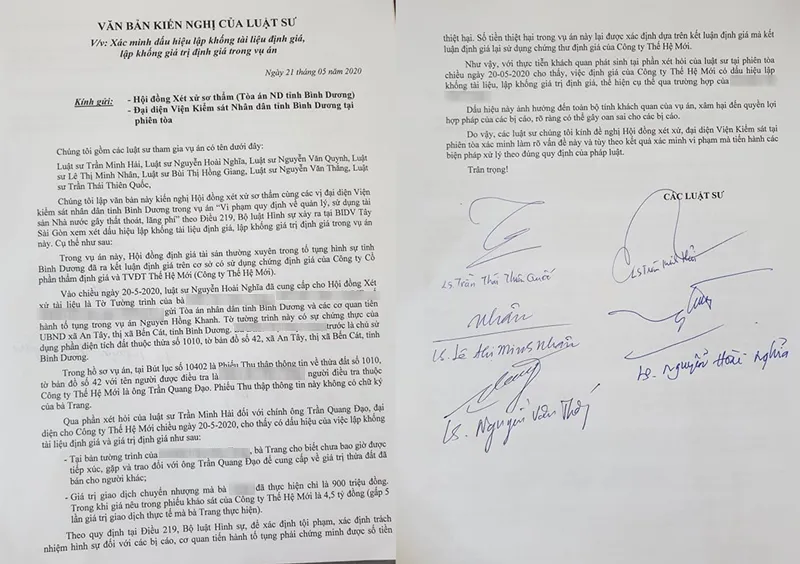 VĂN BẢN KIẾN NGHỊ CỦA LUẬT SƯ
V/v: Xác minh dấu hiệu lập khống tài liệu định giá,
lập khống giá trị định giá trong vụ án
Ngày 21 tháng 05 năm 2020
Kính gửi: - Hội đồng Xét xử sơ thẩm (Tòa án ND tỉnh Bình Dương)
- Đại diện Viện Kiểm sát Nhân dân tỉnh Bình Dương tại
phiên tòa
Chúng tôi gồm các luật sư tham gia vụ án có tên dưới đây:
Luật sư Trần Minh Hải, Luật sư Nguyễn Hoài Nghĩa, Luật sư Nguyễn Văn Quynh, Luật
sư Lê Thị Minh Nhân, Luật sư Bùi Thị Hồng Giang, Luật sư Nguyễn Văn Thắng, Luật
sư Trần Thái Thiên Quốc,
Chúng tôi lập văn bản này kiến nghị Hội đồng xét xử sơ thẩm cùng các vị đại diện Viện
kiểm sát nhân dân tỉnh Bình Dương trong vụ án “Vi phạm quy định về quản lý, sử dụng tài
sản Nhà nước gây thất thoát, lãng phí” theo Điều 219, Bộ luật Hình sự xảy ra tại BIDV Tây
Sài Gòn xem xét dấu hiệu lập khống tài liệu định giá, lập khống giá trị định giá trong vụ án
này. Cụ thể như sau:
Trong vụ án này, Hội đồng định giá tài sản thường xuyên trong tố tụng hình sự tỉnh
Bình Dương đã ra kết luận định giá trên cơ sở có sử dụng chứng định giá của Công ty Cổ
phần thẩm định giá và TVĐT Thế Hệ Mới (Công ty Thế Hệ Mới).
Vào chiều ngày 20-5-2020, luật sư Nguyễn Hoài Nghĩa đã cung cấp cho Hội đồng Xét
xử tài liệu là Tờ Tường trình của bà
gửi Tòa án nhân dân tỉnh Bình Dương và các cơ quan tiến
hành tố tụng trong vụ án Nguyễn Hồng Khanh. Tờ tường trình này có sự chứng thực của
UBND xã An Tây, thị xã Bến Cát, tỉnh Bình Dương. trước là chủ sử
dụng phần diện tích đất thuộc thửa số 1010, tờ bản đồ số 42, xã An Tây, thị xã Bến Cát, tỉnh
Bình Dương.
Trong hồ sơ vụ án, tại Bút lục số 10402 là Phiếu Thu thập thông tin về thửa đất số 1010,
tờ bản đồ số 42 với tên người được điều tra là người điều tra thuộc
Công ty Thế Hệ Mới là ông Trần Quang Đạo. Phiếu Thu thập thông tin này không có chữ ký
của bà Trang.
Qua phần xét hỏi của luật sư Trần Minh Hải đối với chính ông Trần Quang Đạo, đại
diện cho Công ty Thế Hệ Mới chiều ngày 20-5-2020, cho thấy có dấu hiệu của việc lập khống
tài liệu định giá và giá trị định giá như sau:
- Tại bản tường trình của , bà Trang cho biết chưa bao giờ được
tiếp xúc, gặp và trao đổi với ông Trần Quang Đạo để cung cấp về giá trị thửa đất đã
bán cho người khác;
- Giá trị giao dịch chuyển nhượng mà bà đã thực hiện chỉ là 900 triệu đồng.
Trong khi giá nêu trong phiếu khảo sát của Công ty Thế Hệ Mới là 4,5 tỷ đồng (gấp 5
lần giá trị giao dịch thực tế mà bà Trang thực hiện).
Theo quy định tại Điều 219, Bộ luật Hình sự, để xác định tội phạm, xác định trách
nhiệm hình sự đối với các bị cáo, cơ quan tiến hành tố tụng phải chứng minh được số tiền
thiệt hại. Số tiền thiệt hại trong vụ án này lại được xác định dựa trên kết luận định giá mà kết
luận định giá lại sử dụng chứng thư định giá của Công ty Thế Hệ Mới.
Như vậy, với thực tiễn khách quan phát sinh tại phần xét hỏi của luật sư tại phiên tòa
chiều ngày 20-05-2020 cho thấy, việc định giá của Công ty Thế Hệ Mới có dấu hiệu lập
khống tài liệu, lập khống giá trị định giá, thể hiện cụ thể qua trường hợp của
Dấu hiệu này ảnh hưởng đến toàn bộ tính khách quan của vụ án, xâm hại đến quyền lợi
hợp pháp của các bị cáo, rõ ràng có thể gây oan sai cho các bị cáo.
Do vậy, các luật sư chúng tôi kính đề nghị Hội đồng xét xử, đại diện Viện Kiểm sát tại
phiên tòa xác minh làm rõ vấn đề này và tùy theo kết quả xác minh vi phạm mà tiến hành các
biện pháp xử lý theo đúng quy định của pháp luật.
Trân trọng!
CÁC LUẬT SƯ
Ls Trần Thái Thiên Quốc
Ls Trần Minh Hải
Nhân
Ls. Lê Thị Minh Nhân
Ls. Nguyễn Hoài Nghĩa
Ls. Nguyễn Văn Thắng